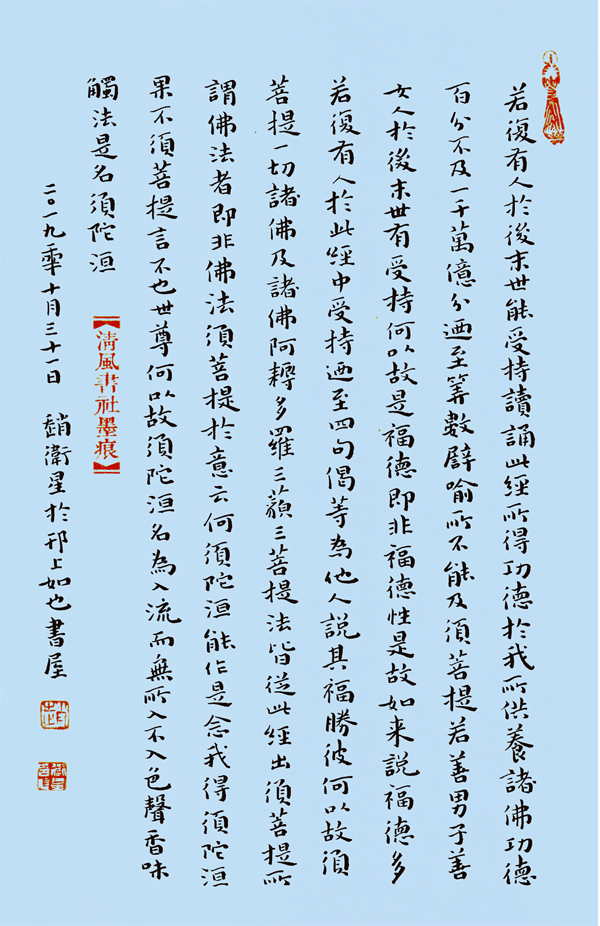 若復有人於後末世能受持讀誦此經所得功德於我所供養諸佛功德
百分不及一千萬億分迺至筭數譬喻所不能及須菩提若善男子善
女人於後末世有受持何以故是福德即非福德性是故如来說福德多
若復有人於此經中受持迺至四句偈等為他人說其福勝彼何以故須
菩提一切諸佛及諸佛阿耨多羅三藐三菩提法皆從此經出須菩提所
謂佛法者即非佛法須菩提於意云何須陀洹能作是念我得須陀洹
果不須菩提言不也世尊何以故須陀洹名為入流而無所入不入色聲香味
觸法是名須陀洹
【清風書社墨痕】
二〇一九年十月三十一日 趙衛星於邗上如也書屋